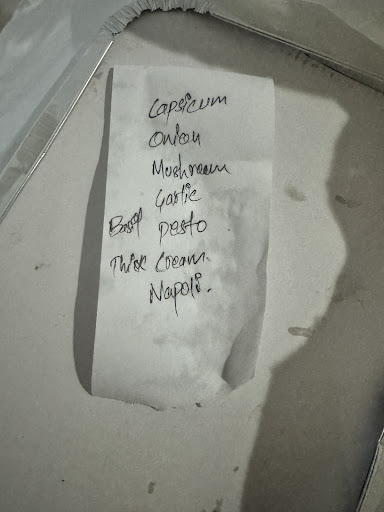 Capsicum
Onion
Mushroom
Garlic
Basil pesto
Thick Cream.
Napoli.